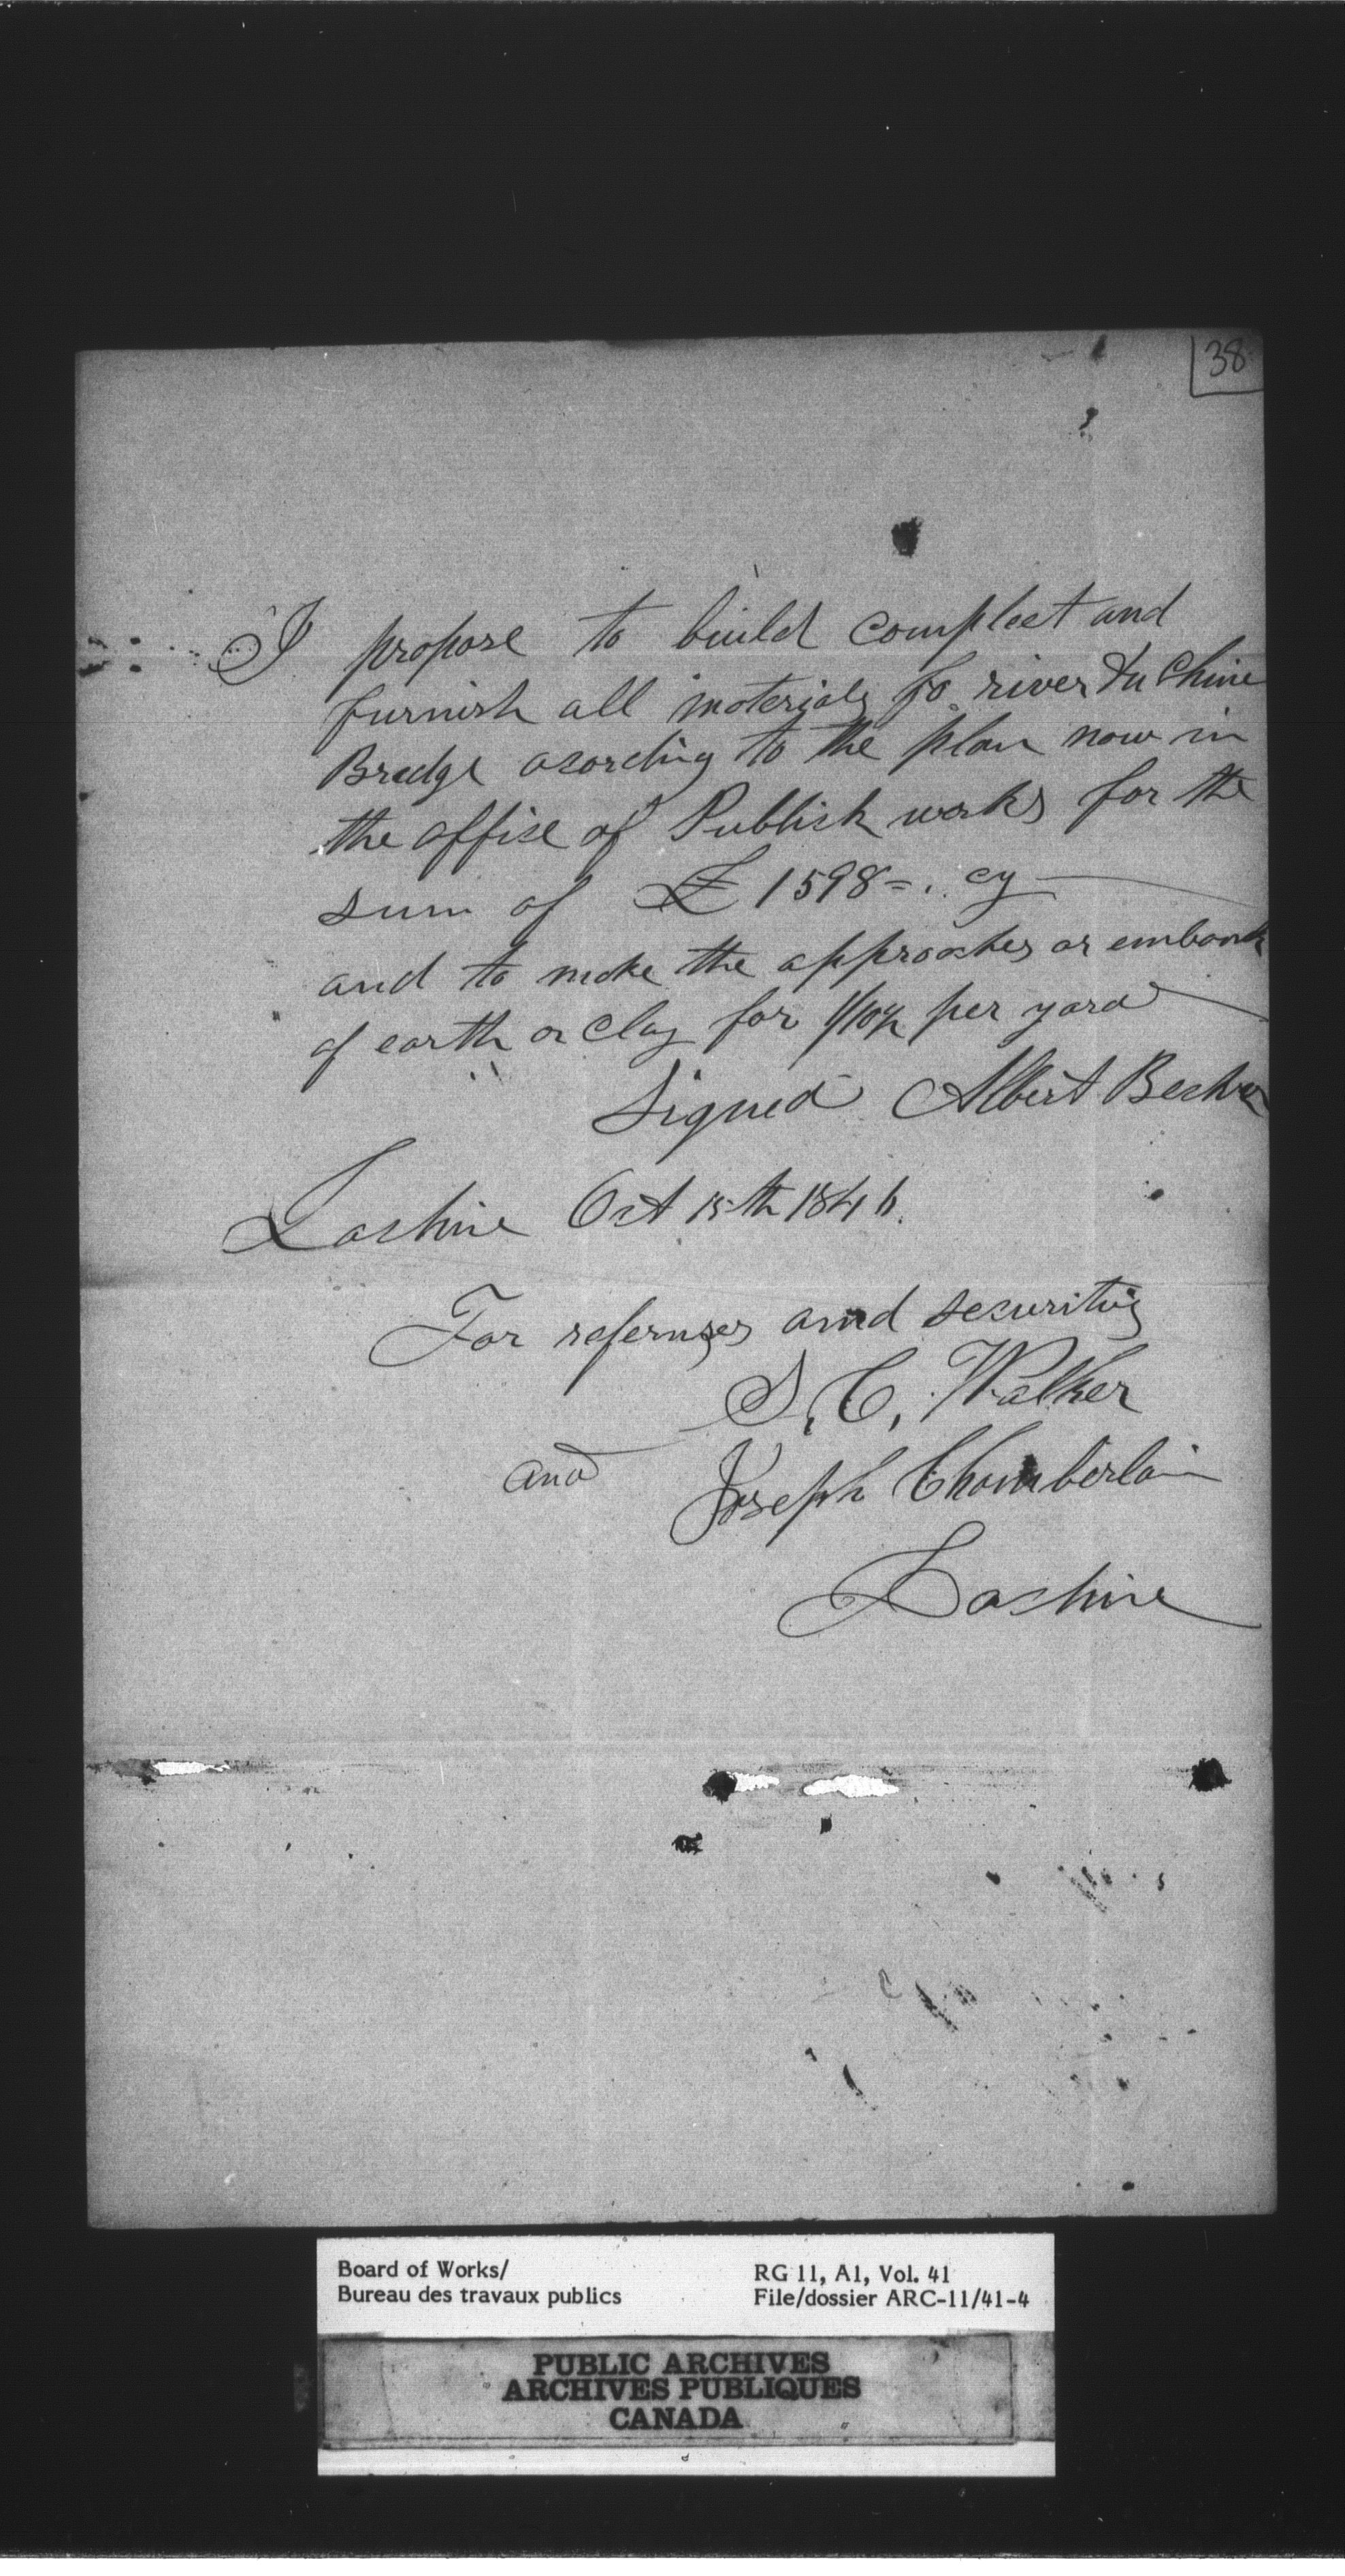 38
I propose to build compleet and
furnish all materials fo river du Chine
Bredge acording to the plan now in
the offise of Publick works for the
sum of £ 1598=. cy
and to make the approaches or embank
of earth or clay for 1/10½ per yard
Signed Albert
Lachine Oct 15th 1846.
For refernses and securitys
S. C. Walker
and Joseph Chamberlain
Lachine
Board of Works/
Bureau des travaux publics
RG 11, A1, Vol. 41
File/dossier ARC-11/41-4
PUBLIC ARCHIVES
ARCHIVES PUBLIQUES
CANADA